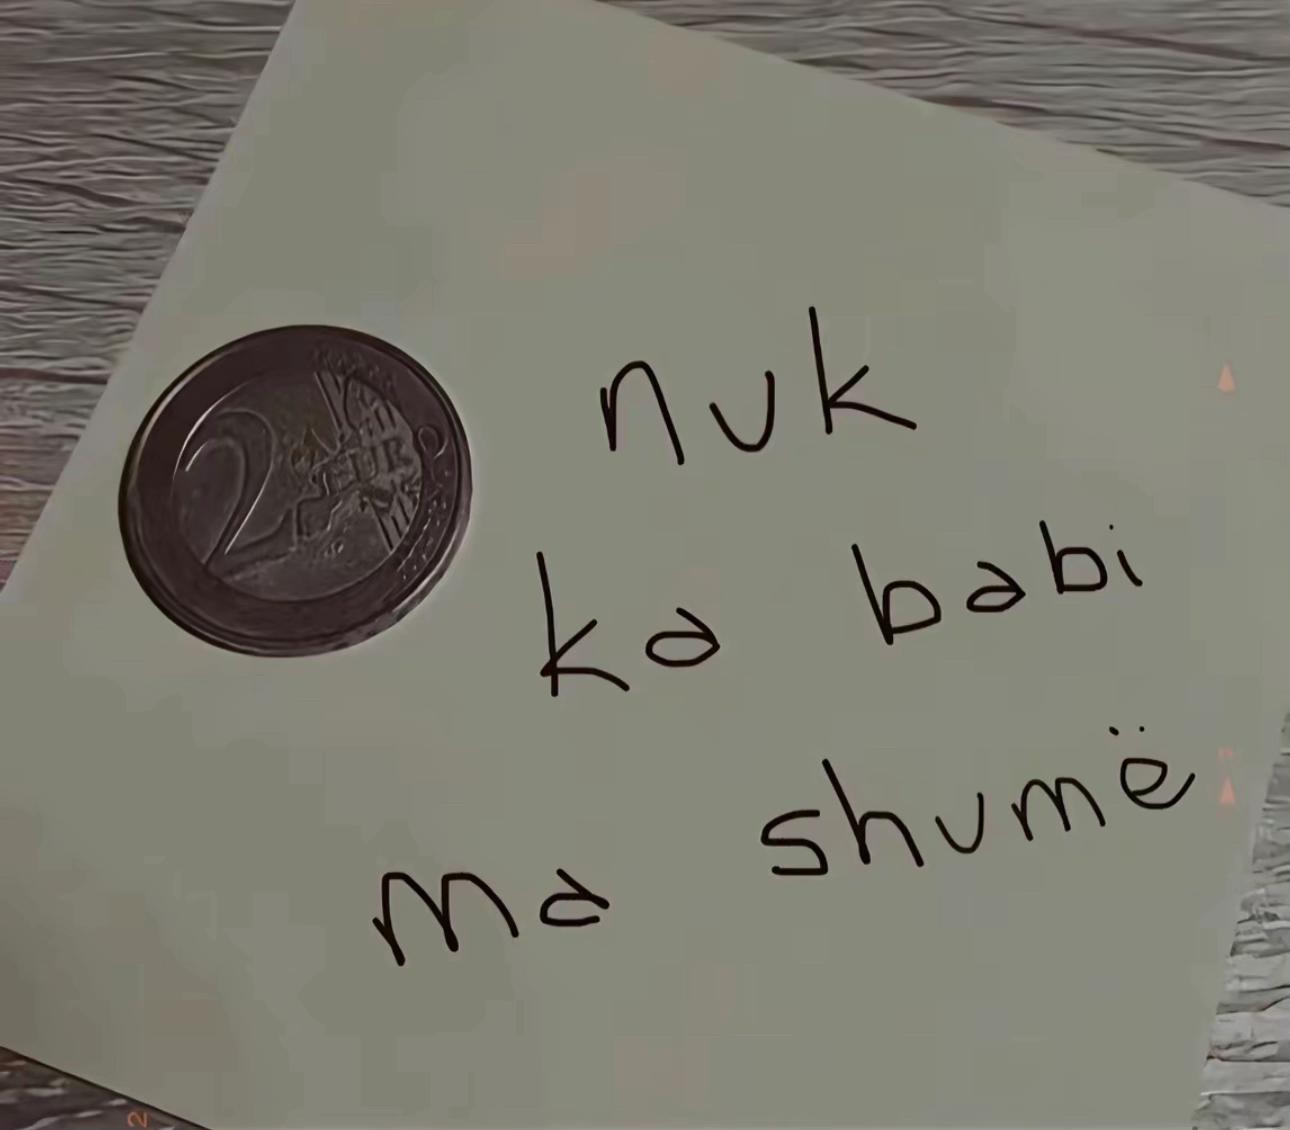 2
EURO
nuk
ka babi
ma shumë